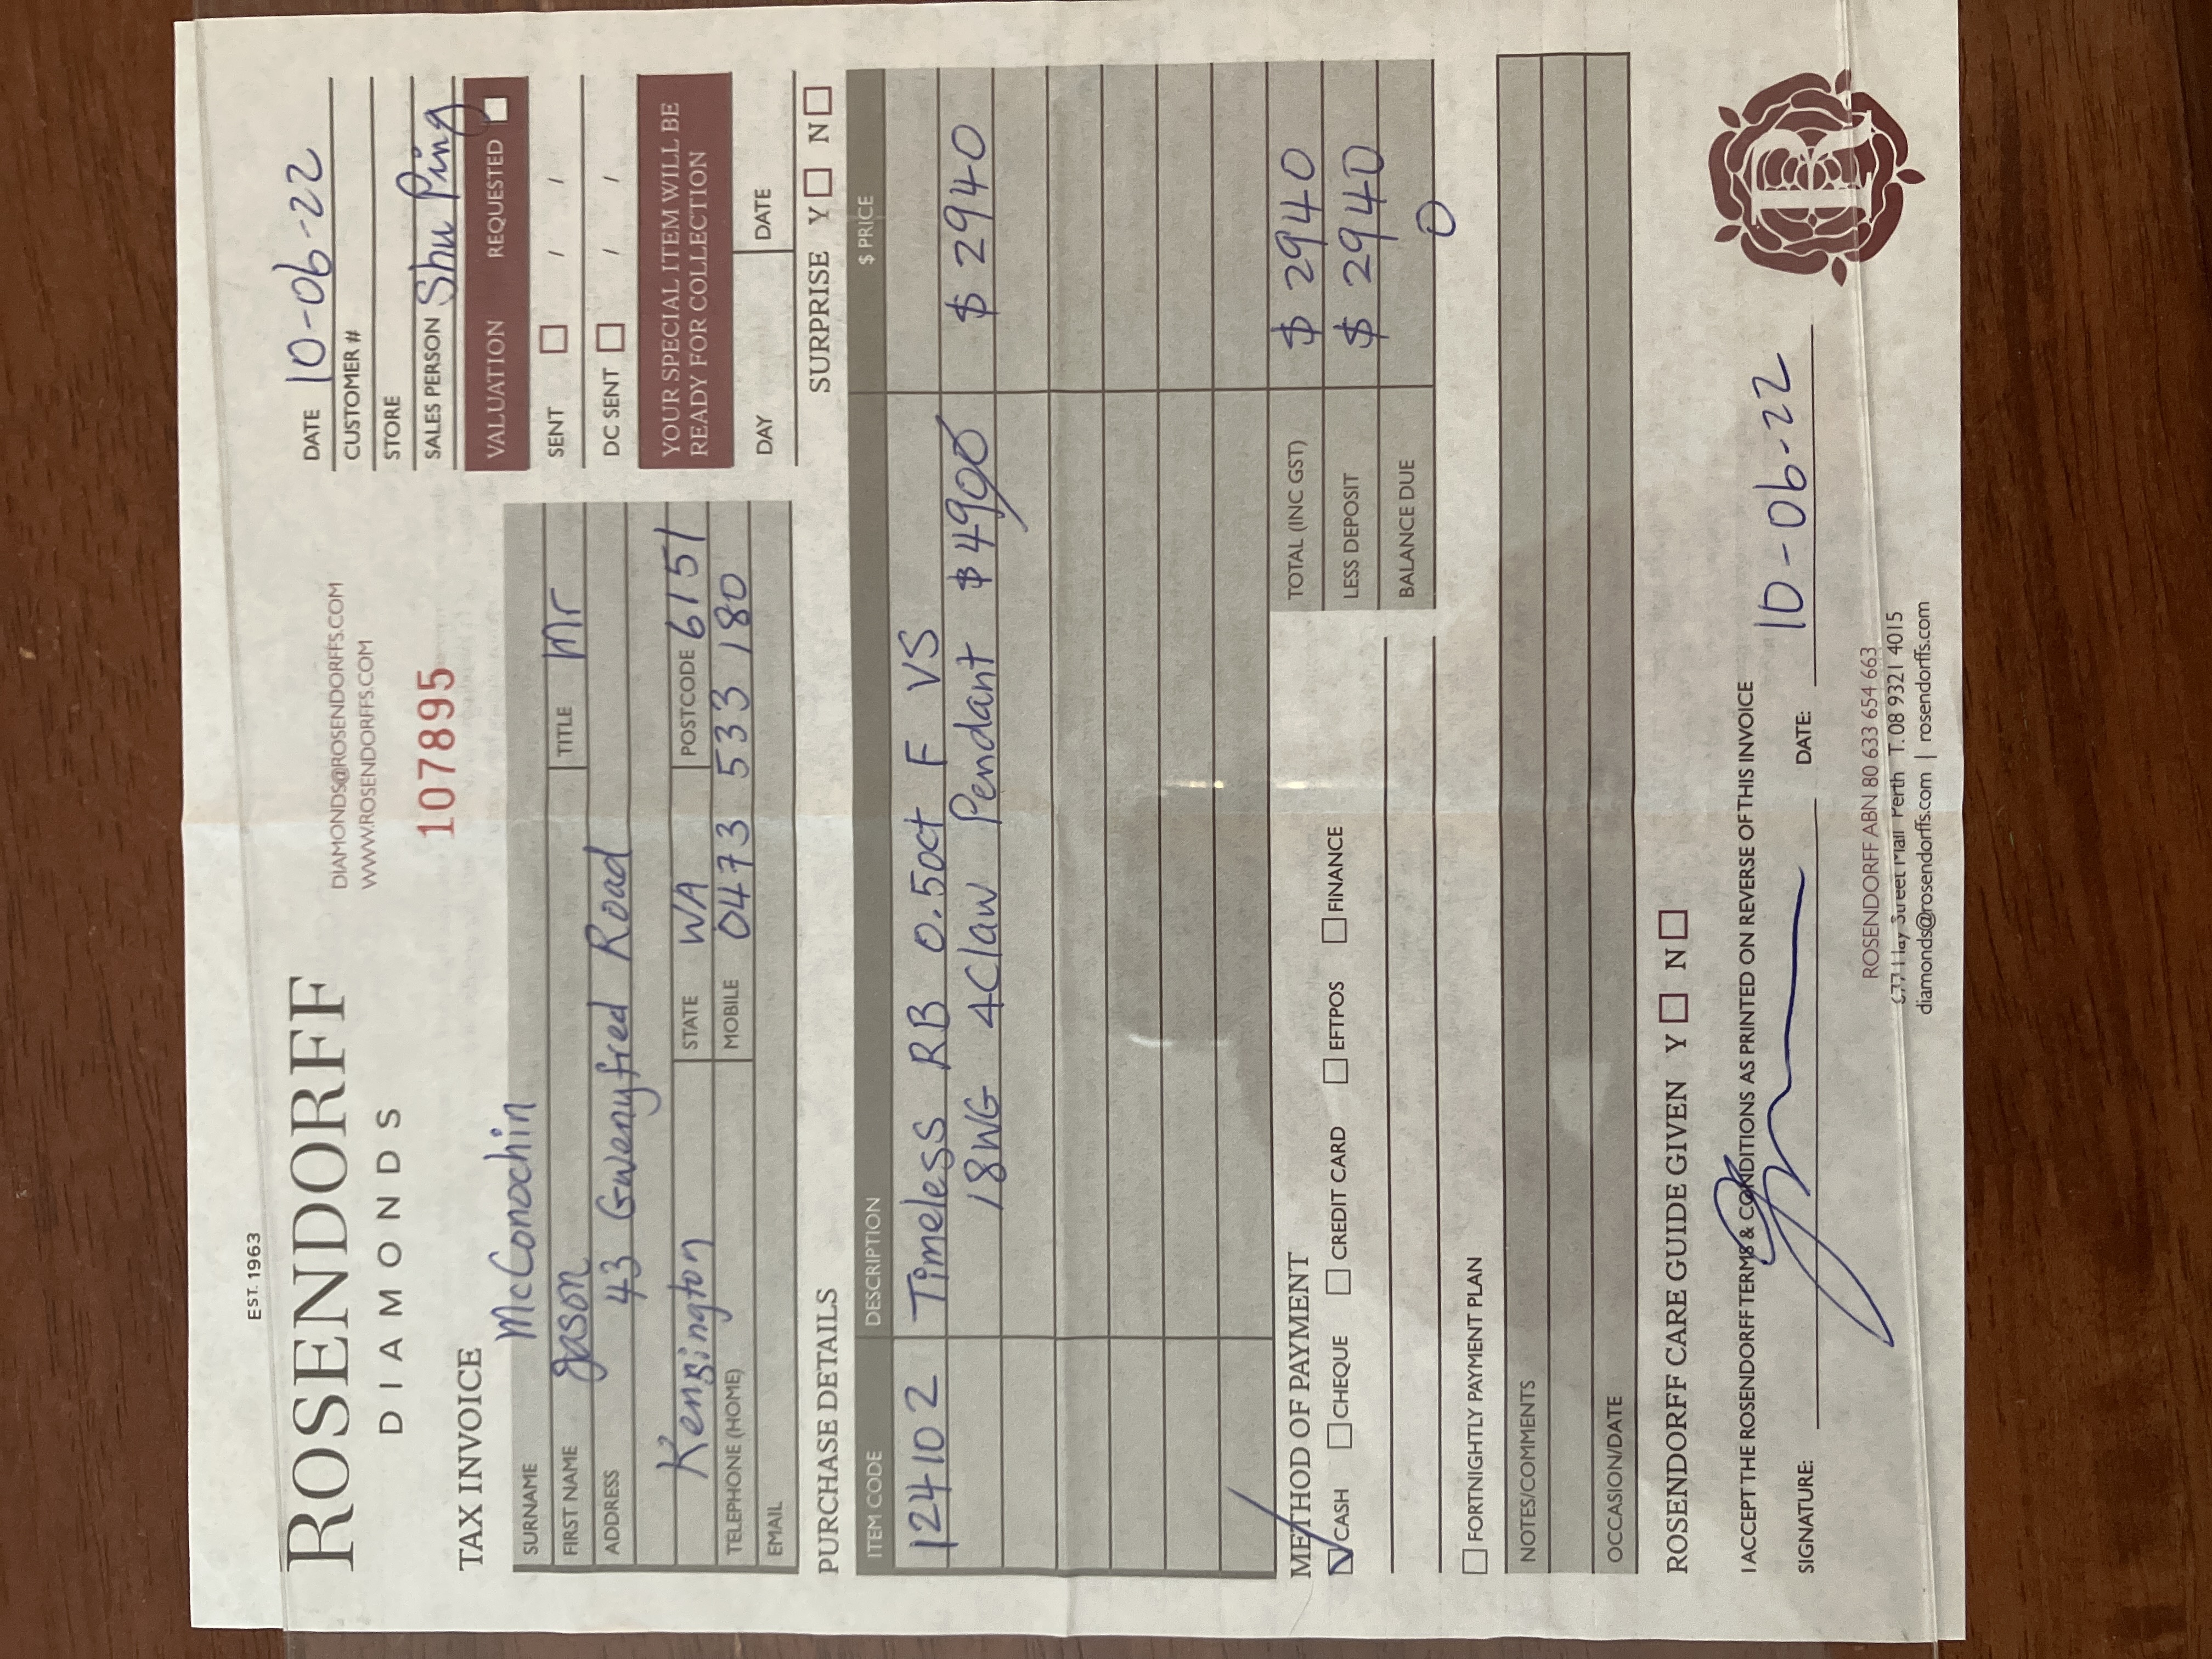 EST. 1963
ROSENDORFF
DIAMONDS
DIAMONDS@ROSENDORFFS.COM
WWW.ROSENDORFFS.COM
107895
DATE 10-06-22
CUSTOMER #
STORE
SALES PERSON Shu Ping
TAX INVOICE
VALUATION REQUESTED
SENT / /
DC SENT / /
YOUR SPECIAL ITEM WILL BE
READY FOR COLLECTION
DAY DATE
SURPRISE Y N
SURNAME McConochin
FIRST NAME Jason TITLE Mr
ADDRESS 43 Gwenyfred Road
Kensington STATE WA POSTCODE 6151
TELEPHONE (HOME) MOBILE 0473 533 180
EMAIL
PURCHASE DETAILS
ITEM CODE DESCRIPTION $ PRICE
124102 Timeless RB 0.50ct F VS
18WG 4Claw Pendant $4900 $ 2940
METHOD OF PAYMENT
CASH CHEQUE CREDIT CARD EFTPOS FINANCE
TOTAL (INC GST) $ 2940
LESS DEPOSIT $ 2940
BALANCE DUE 0
FORTNIGHTLY PAYMENT PLAN
NOTES/COMMENTS
OCCASION/DATE
ROSENDORFF CARE GUIDE GIVEN Y N
I ACCEPT THE ROSENDORFF TERMS & CONDITIONS AS PRINTED ON REVERSE OF THIS INVOICE
SIGNATURE: DATE: 10-06-22
R
ROSENDORFF ABN 80 633 654 663
677 Hay Street Mall Perth T. 08 9321 4015
diamonds@rosendorffs.com | rosendorffs.com